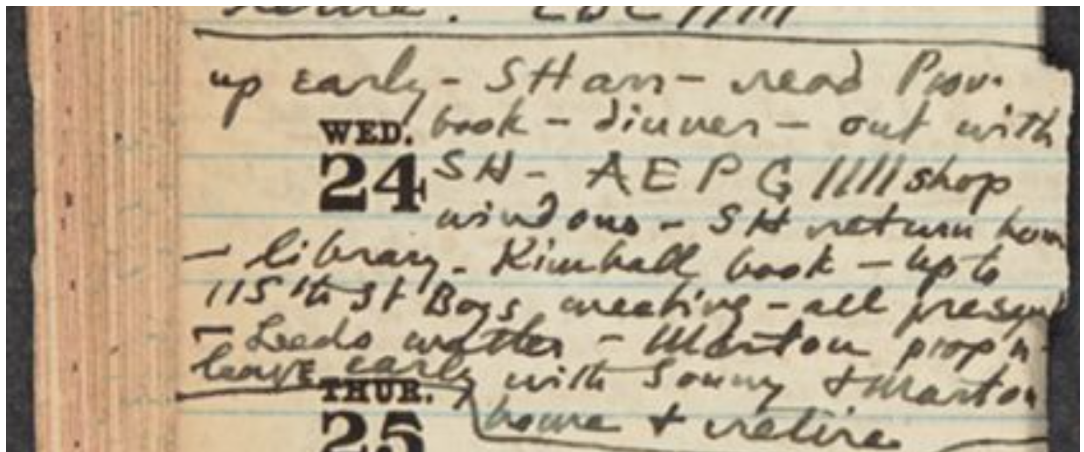 home. EDC 11111
up early - SH arr - read Prov.
WED. book - dinner - out with
24 SH - A E P G 1111 shop
windows - SH return home
- library - Kimball book - up to
115th St Boys meeting - all present
- Leeds matter - Morton prop'n -
leave early with Sonny + Morton
THUR.
25 home + retire